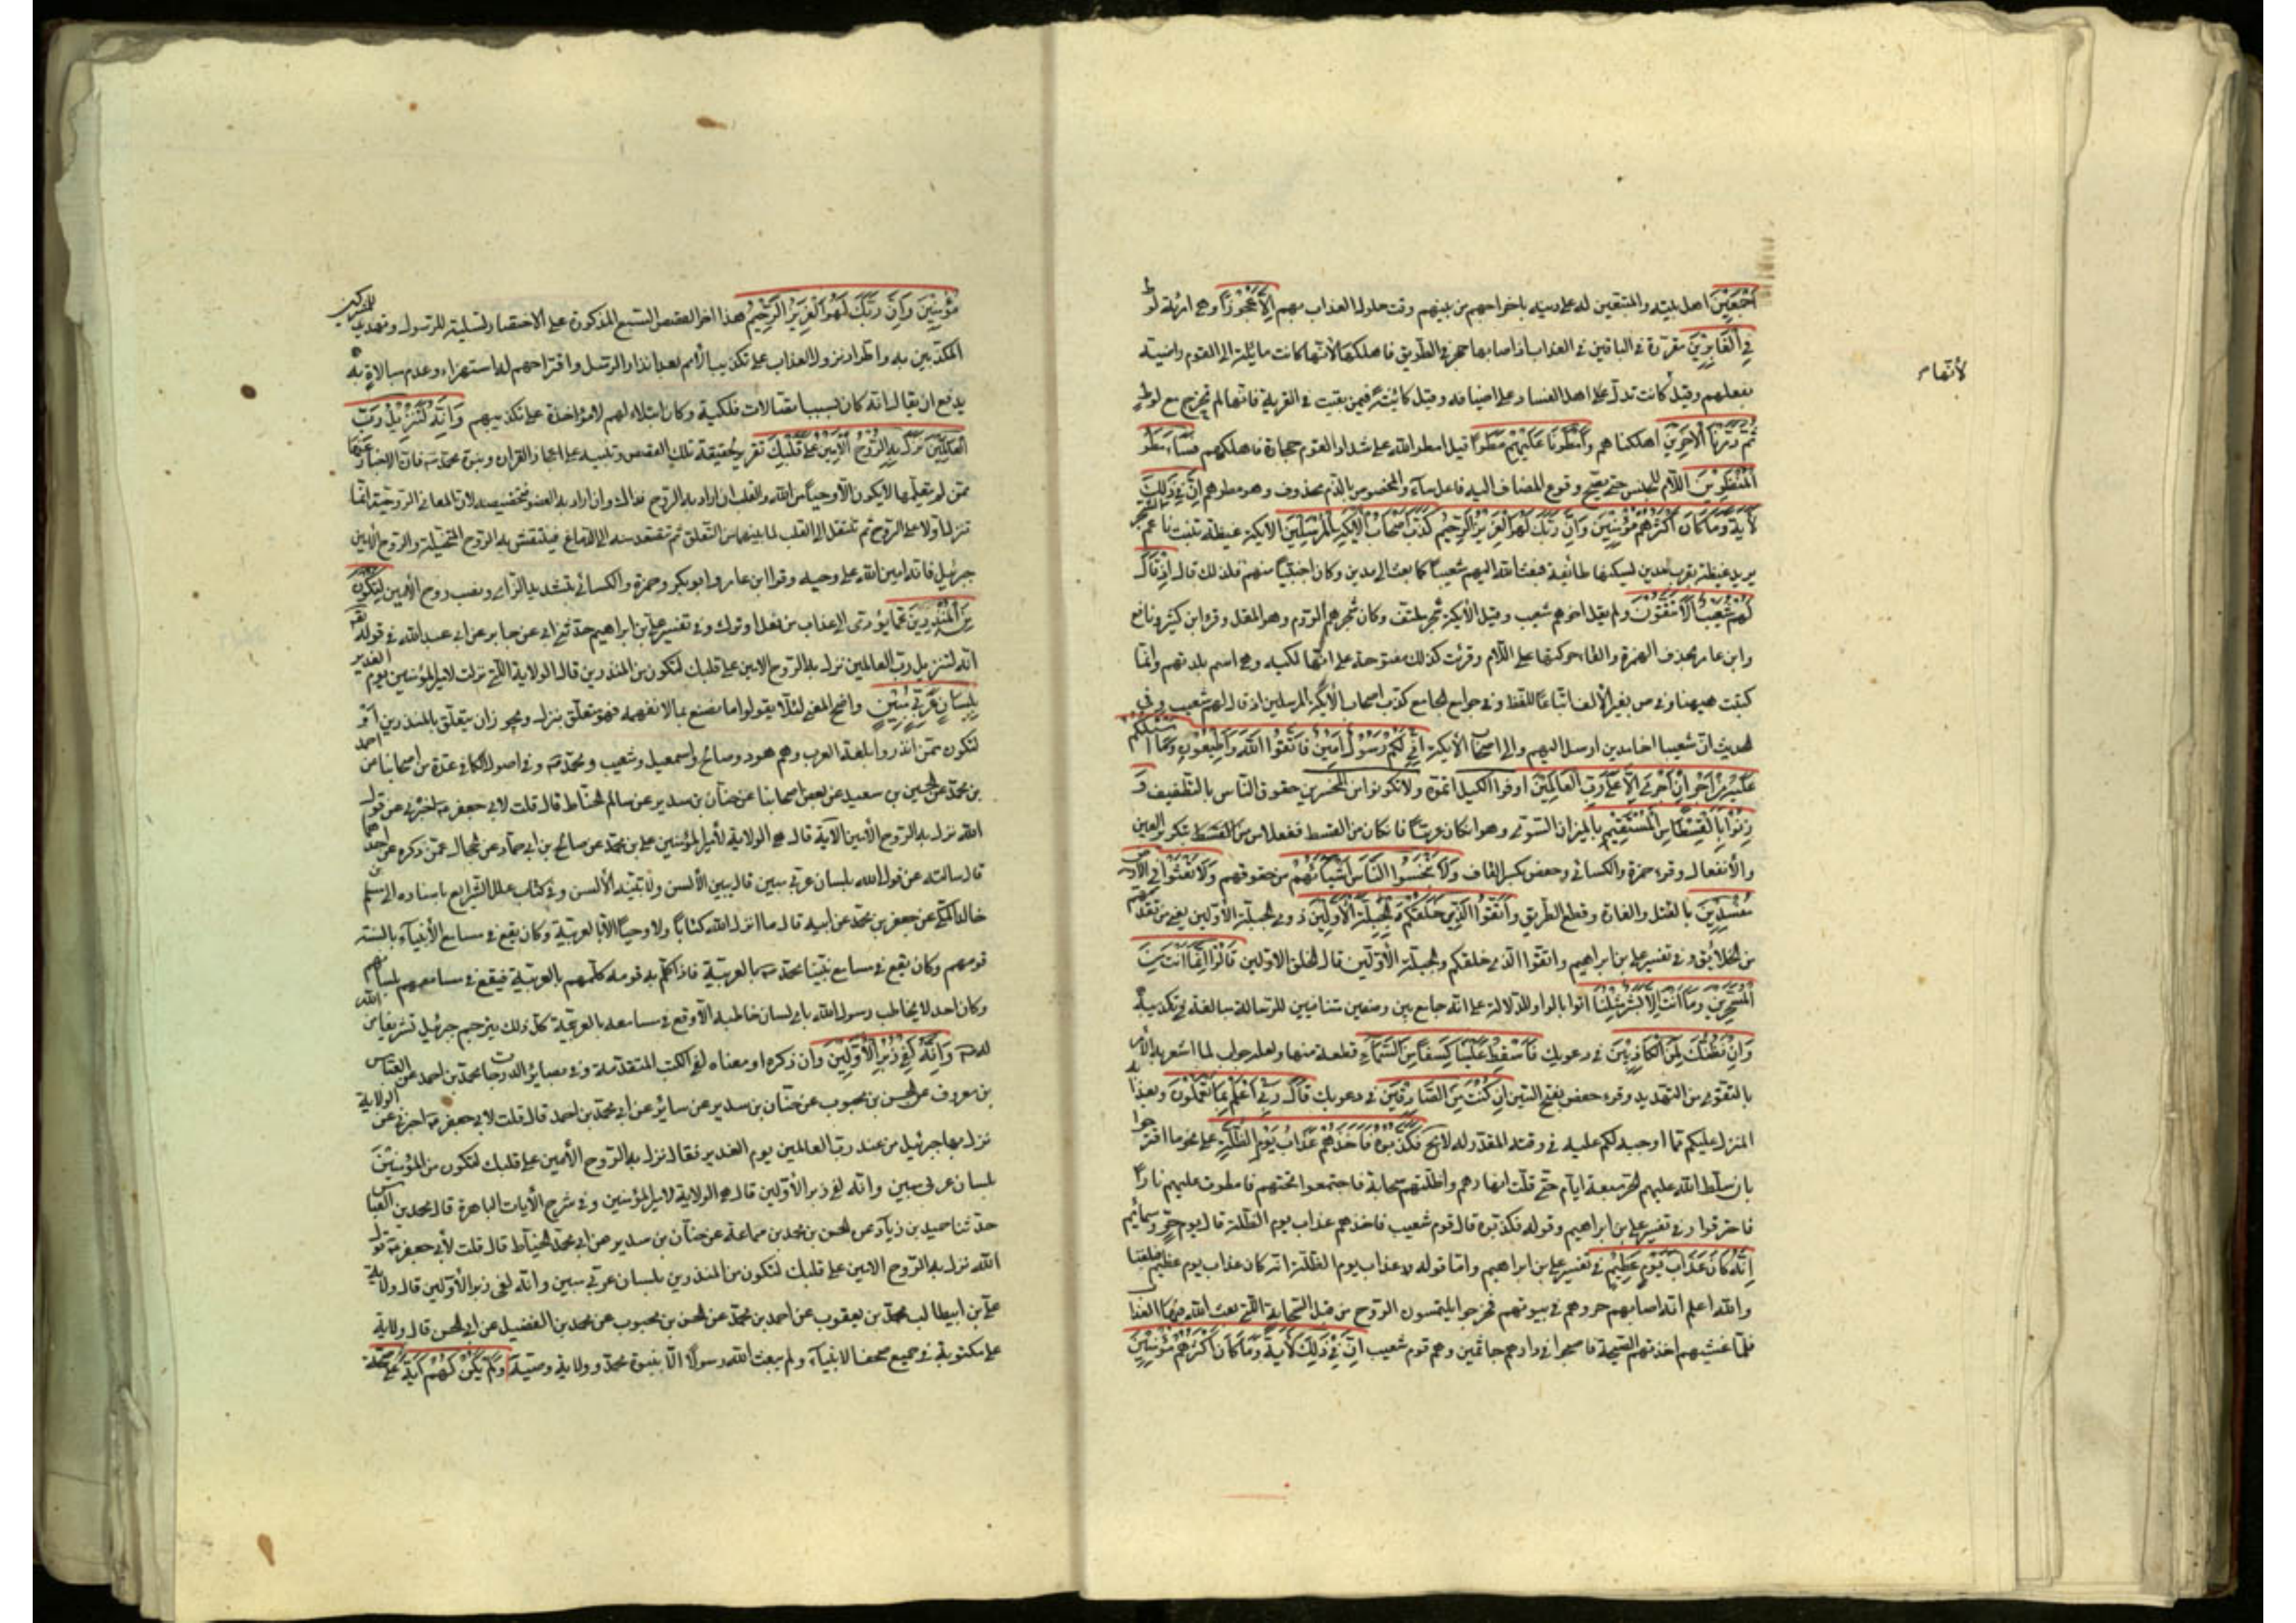 أَجْمَعِينَ اهل بيته والمتبعين له على دينه باخراجهم من بينهم وقت حلول العذاب بهم إِلَّا عَجُوزًا وهى امرأة لوط
فِي الْغَابِرِينَ مقدّرة فى الباقين فى العذاب اذ اصابها حجر فى الطريق فاهلكها لأنّها كانت مائلة الى القوم راضية
بفعلهم وقيل كانت تدلّ على اهل الفساد على اضيافه وقيل كائنة فيمن بقيت فى القرية فانّها لم تخرج مع لوط
ثُمَّ دَمَّرْنَا الْآخَرِينَ اهلكناهم وَأَمْطَرْنَا عَلَيْهِمْ مَطَرًا قيل امطر الله على شذاذ القوم حجارة فاهلكهم فَسَاءَ مَطَرُ
الْمُنْذَرِينَ اللّام للجنس حتى يصحّ وقوع المضاف اليه فاعل ساء والمخصوص بالذم محذوف وهو مطرهم إِنَّ فِي ذَلِكَ
لَآيَةً وَمَا كَانَ أَكْثَرُهُمْ مُؤْمِنِينَ وَإِنَّ رَبَّكَ لَهُوَ الْعَزِيزُ الرَّحِيمُ كَذَّبَ أَصْحَابُ الْأَيْكَةِ الْمُرْسَلِينَ الايكة غيضة تنبت ناعم الشجر
يريد غيضة بقرب مدين تسكنها طائفة فبعث الله اليهم شعيبا كما بعث الى مدين وكان اجنبيّا منهم فلذلك قال إِذْ قَالَ
لَهُمْ شُعَيْبٌ أَلَا تَتَّقُونَ ولم يقل اخوهم شعيب وقيل الأيكة شجر ملتف وكان شجرهم الدوم وهو المقل وقرء ابن كثير ونافع
وابن عامر بحذف الهمزة والقاء حركتها على اللّام وقرئت كذلك مفتوحة على انّها ليكة وهى اسم بلدتهم وانّما
كتبت هيهنا وفى ص بغير الألف اتّباعًا للفظ وفى جوامع الجامع كذّب اصحاب الأيكة المرسلين اذ قال لهم شعيب وفى
الحديث انّ شعيبا اخا مدين ارسل اليهم والى اصحاب الأيكة إِنِّي لَكُمْ رَسُولٌ أَمِينٌ فَاتَّقُوا اللَّهَ وَأَطِيعُونِ وَمَا أَسْئَلُكُمْ
عَلَيْهِ مِنْ أَجْرٍ إِنْ أَجْرِيَ إِلَّا عَلَى رَبِّ الْعَالَمِينَ اوفوا الكيل اتمّوه ولا تكونوا من المخسرين حقوق الناس بالتطفيف وَ
زِنُوا بِالْقِسْطَاسِ الْمُسْتَقِيمِ بالميزان السّوى وهو ان كان عربيّا فان كان من القسط ففعلاس بتكرير العين
والا ففعلال وقرء حمزة والكسائى وحفص بكسر القاف وَلَا تَبْخَسُوا النَّاسَ أَشْيَاءَهُمْ من حقوقهم وَلَا تَعْثَوْا فِي الْأَرْضِ
مُفْسِدِينَ بالقتل والغارة وقطع الطريق وَاتَّقُوا الَّذِي خَلَقَكُمْ وَالْجِبِلَّةَ الْأَوَّلِينَ وذوى الجبلّة الأوّلين يعنى من تقدّمهم
من الخلائق وفى تفسير على بن ابراهيم واتقوا الّذى خلقكم والجبلّة الأوّلين قال الخلق الاوّلين قَالُوا إِنَّمَا أَنْتَ مِنَ
الْمُسَحَّرِينَ وَمَا أَنْتَ إِلَّا بَشَرٌ مِثْلُنَا اتوا بالواو للدلالة على انه جامع بين وصفين متنافيين للرسالة مبالغة فى تكذيبه
وَإِنْ نَظُنُّكَ لَمِنَ الْكَاذِبِينَ فى دعويك فَأَسْقِطْ عَلَيْنَا كِسَفًا مِنَ السَّمَاءِ قطعة منها ولعلّه جواب لما اشعر به الأمر
بالتقوى من التهديد وقرء حفص بفتح السّين إِنْ كُنْتَ مِنَ الصَّادِقِينَ فى دعويك قَالَ رَبِّي أَعْلَمُ بِمَا تَعْمَلُونَ وبعذابه
المنزل عليكم ممّا اوجبه لكم عليه فى وقته المقدّر له لا محالة فَكَذَّبُوهُ فَأَخَذَهُمْ عَذَابُ يَوْمِ الظُّلَّةِ على نحو ما اقترحوا
بان سلّط الله عليهم الحر سبعة ايّام حتّى غلت انهارهم واظلّتهم سحابة فاجتمعوا تحتهم فامطرت عليهم نارًا
فاحترقوا وفى تفسير على بن ابراهيم وقوله فكذّبوه قال قوم شعيب فاخذهم عذاب يوم الظّلّة قال يوم حرّ وسمائم
إِنَّهُ كَانَ عَذَابَ يَوْمٍ عَظِيمٍ فى تفسير على بن ابراهيم وامّا قوله عذاب يوم الظلّة انّه كان عذاب يوم عظيم فبلغنا
والله اعلم انه اصابهم حر وهم فى بيوتهم فخرجوا يلتمسون الروح من قبل السّحابة الّتى بعث الله فيها العذاب
فلمّا غشيهم اخذتهم الصّيحة فاصبحوا فى دارهم جاثمين وهم قوم شعيب إِنَّ فِي ذَلِكَ لَآيَةً وَمَا كَانَ أَكْثَرُهُمْ مُؤْمِنِينَ
لأنّها
مُؤْمِنِينَ وَإِنَّ رَبَّكَ لَهُوَ الْعَزِيزُ الرَّحِيمُ هذا اخر القصص السّبع المذكورة على الاختصار تسلية للرسول وتهديدا
المكذبين به واطراد نزول العذاب على تكذيب الأمم بعد انذار الرسل واقتراحهم له استهزاء وعدم مبالاة به
يدفع ان يقال انه كان بسبب اتصالات فلكية وكان ابتلاء لهم لا مؤاخذة على تكذيبهم وَإِنَّهُ لَتَنْزِيلُ رَبِّ
الْعَالَمِينَ نَزَلَ بِهِ الرُّوحُ الْأَمِينُ عَلَى قَلْبِكَ تقرير لحقيقة تلك القصص وتنبيه على اعجاز القران ونبوة محمّد ص فانّ الاخبار عنها
ممّن لم يتعلّمها لا يكون الّا وحيا من الله والقلب ان اراد به الروح فذاك وان اراد به العضو فتخصيصه لانّ المعانى الروحية انّما
تنزل اولا على الروح ثم تنتقل الى القلب لما بينهما من التّعلق ثم تتصعد منه الى الدماغ فينتقش به لوح المتخيّلة والروح الامين
جبرئيل فانه امين الله على وحيه وقرا ابن عامر وابو بكر وحمزة والكسائى بتشديد الزاى ونصب روح الأمين لِتَكُونَ
مِنَ الْمُنْذِرِينَ عمّا يؤدّى الى عذاب من فعل او ترك وفى تفسير على بن ابراهيم حدّثنى ابى عن جابر عن ابى عبد الله فى قوله
انه لتنزيل رب العالمين نزل به الروح الامين على قلبك لتكون من المنذرين قال الولاية الّتى نزلت لامير المؤمنين يوم الغدير
بِلِسَانٍ عَرَبِيٍّ مُبِينٍ واضح المعنى لئلّا يقولوا ما نصنع بما لا نفهمه فهو متعلّق بنزل ويجوز ان يتعلّق بالمنذرين اى
لتكون ممّن انذروا بلغة العرب وهم هود وصالح واسمعيل وشعيب ومحمّد ص وفى اصول الكافى عدّة من اصحابنا عن احمد
بن محمّد عن الحسين بن سعيد عن بعض اصحابنا عن حنان بن سدير عن سالم الحنّاط قال قلت لابى جعفر ع اخبرنى عن قول
الله نزل به الروح الأمين الآية قال هى الولاية لأمير المؤمنين على بن محمّد عن صالح بن ابى حمّاد عن الحجال عمّن ذكره عن احدهما
قال سالته عن قول الله بلسان عربى مبين قال يبين الألسن ولا تبيّنه الألسن وفى كتاب علل الشرايع باسناده الى مسلم بن
خالد المكّى عن جعفر بن محمّد عن ابيه قال ما انزل الله كتابًا ولا وحيًا الّا بالعربيّة وكان يقع فى مسامع الأنبياء بالسنة
قومهم وكان يقع فى مسامع نبيّنا محمّد ص بالعربيّة فاذا كلّم به قومه كلّمهم بالعربيّة فيقع فى مسامعهم بلسانهم
وكان احد لا يخاطب رسول الله باى لسان خاطبه الّا وقع فى مسامعه بالعربيّة كلّ ذلك يترجم جبرئيل تشريفا من الله
له ص وَإِنَّهُ لَفِي زُبُرِ الْأَوَّلِينَ وان ذكره او معناه لفى الكتب المتقدّمة وفى بصائر الدرجات محمّد بن احمد عن العباس
بن معروف عن الحسن بن محبوب عن حنّان بن سدير عن عن ابى محمّد قال قلت لابى جعفر ع اخبرنى عن الولاية
نزل بها جبرئيل من عند ربّ العالمين يوم الغدير فقال نزل به الروح الأمين على قلبك لتكون من المؤمنين
بلسان عربى مبين وانّه لفى زبر الأوّلين قال هى الولاية لامير المؤمنين وفى شرح الآيات الباهرة قال محمد بن العباس
حدّثنا حميد بن زياد عن الحسن بن محمد بن سماعة عن حنّان بن سدير عن ابى محمّد الحنّاط قال قلت لأبى جعفر ع قول
الله نزل به الروح الامين على قلبك لتكون من المنذرين بلسان عربى مبين وانّه لفى زبر الأوّلين قال ولاية
على بن ابيطالب محمّد بن يعقوب عن احمد بن محمّد عن الحسن بن محبوب عن محمد بن الفضيل عن ابى الحسن قال ولاية
على مكتوبة فى جميع صحف الانبياء ولم يبعث الله رسولا الّا بنبوّة محمّد وولاية وصيّه أَوَلَمْ يَكُنْ لَهُمْ آيَةً على صحّة